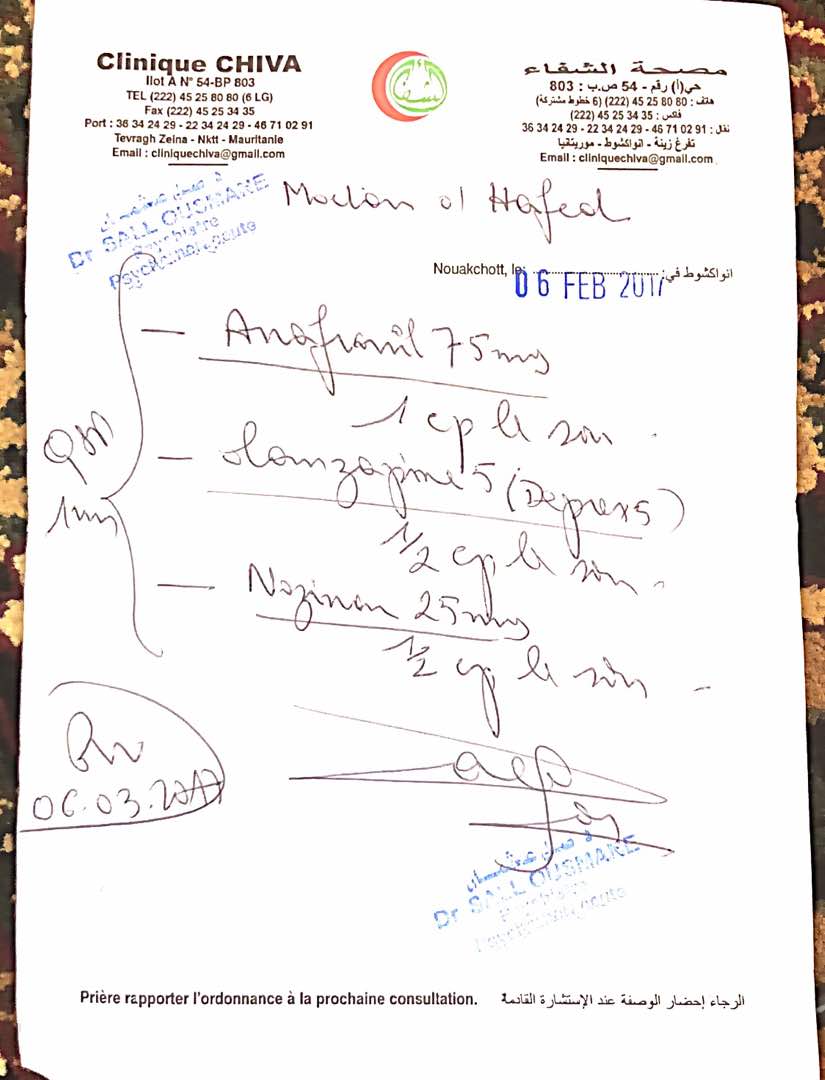 Clinique CHIVA
Ilot A N° 54-BP 803
TEL (222) 45 25 80 80 (6 LG)
Fax (222) 45 25 34 35
Port : 36 34 24 29 - 22 34 24 29 - 46 71 02 91
Tevragh Zeina - Nktt - Mauritanie
Email : cliniquechiva@gmail.com
مصحة الشفاء
حي(أ) رقم - 54 ص.ب : 803
هاتف : 80 80 25 45 (222) (6 خطوط مشتركة)
فاكس : 35 34 25 45 (222)
نقال : 91 02 71 46 - 29 24 34 22 - 29 24 34 36
تفرغ زينة - انواكشوط - موريتانيا
Email : cliniquechiva@gmail.com
Dr SALL OUSMANE
Psychiatre
Psychothérapeute
ol Hafed
Nouakchott, le: انواكشوط في:
06 FEB 2017
— Anafranil 75mg
1 cp le soir.
— Olanzapine 5 (Deprex5)
1/2 cp le soir.
— Nozinan 25mg
1/2 cp le soir -
QSP
1m
RV
06.03.2017
Dr SALL OUSMANE
Psychiatre
Psychothérapeute
Prière rapporter l'ordonnance à la prochaine consultation. الرجاء إحضار الوصفة عند الإستشارة القادمة